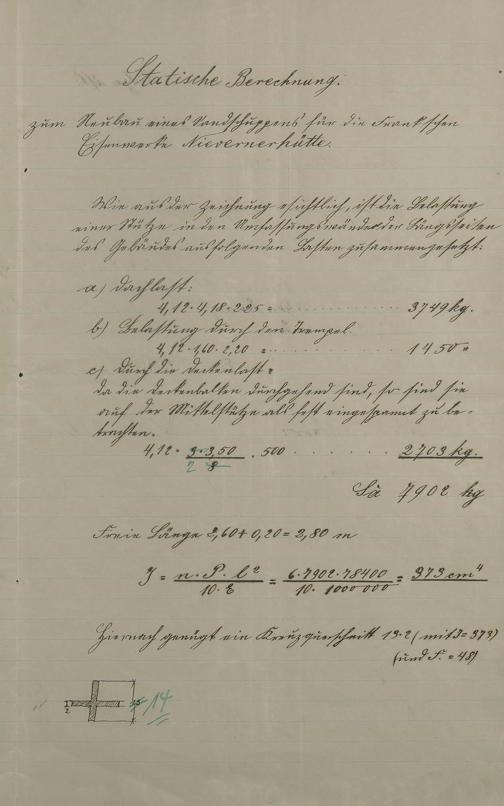 Statische Berechnung.
zum Neubau eines Sandschuppens für die Frank'schen
Eisenwerke Nievernerhütte.
Wie aus der Zeichnung ersichtlich, ist die Belastung
einer Stütze in den Umfassungswänden der Längsseiten
des Gebäudes aus folgenden Lasten zusammengesetzt:
a) Dachlast:
4,12 · 4,18 · 225 = 3749 kg.
b) Belastung durch den Trempel.
4,12 · 1,60 · 2,20 = 1450 "
c) Durch die Deckenlast:
da die Deckenbalken durchgehend sind, so sind sie
auf der Mittelstütze als fest eingespannt zu be-
trachten.
4,12 · 3·3,50 / 8 · 500 2703 kg.
2
Sa 7902 kg
Freie Länge 2,60 + 0,20 = 2,80 m
J = n·P·l² / 10·E = 6·7902·78400 / 10·1000000 = 373 cm⁴
Hiernach genügt ein Kreuzquerschnitt 13·2 (mit J = 373)
(und F. = 48)
2 14